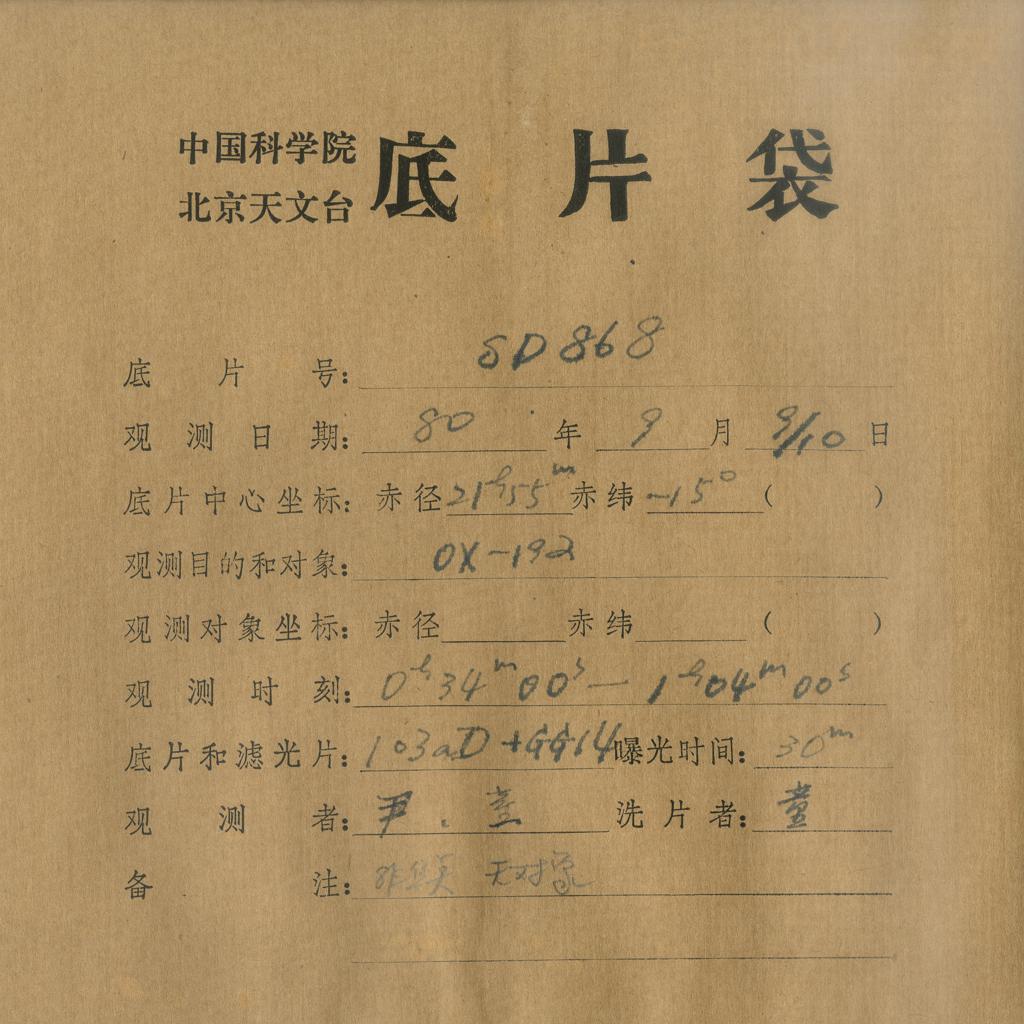 中国科学院
北京天文台
底片袋
底片号: SD868
观测日期: 80年9月9/10日
底片中心坐标: 赤径21h55m赤纬-15°( )
观测目的和对象: OX-192
观测对象坐标: 赤径 赤纬 ( )
观测时刻: 0h34m00s—1h04m00s
底片和滤光片: 103aD+GG14 曝光时间: 30m
观测者: 尹. 童 洗片者: 童
备注: 无对象